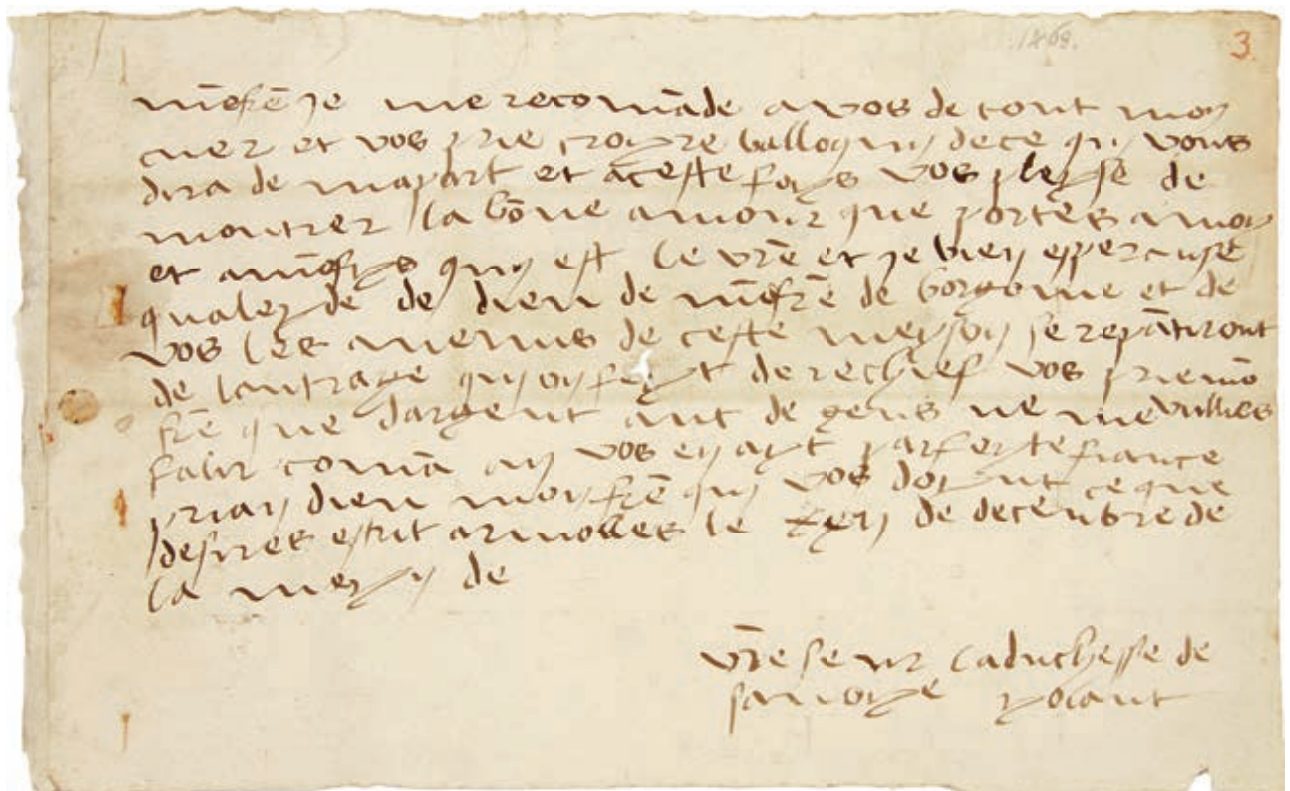 1469.
3
mōfrē je me recomāde a vos de tout mon
cuer et vos prie croyre de ce quy vous
dira de mapart et aceste foys vos pleyse de
montrer la bōne amour que portes a moy
et a mōfys quy est le vrē et je bien esperanse
qualeyde de dieu de mōfrē de borgonne et de
vos les anemis de ceste meyson se repātiront
de loutrage quy on feyt derechief vos prie mō
frē que dargent ant de gens ne me vullies
falir comā an vos enayt parfeyte fiance
prian dieu mon frē quy vos doynt ce que
desires escrit a le de decēnbre de
la meyn de
vrē seur laduchesse de
savoye yolant